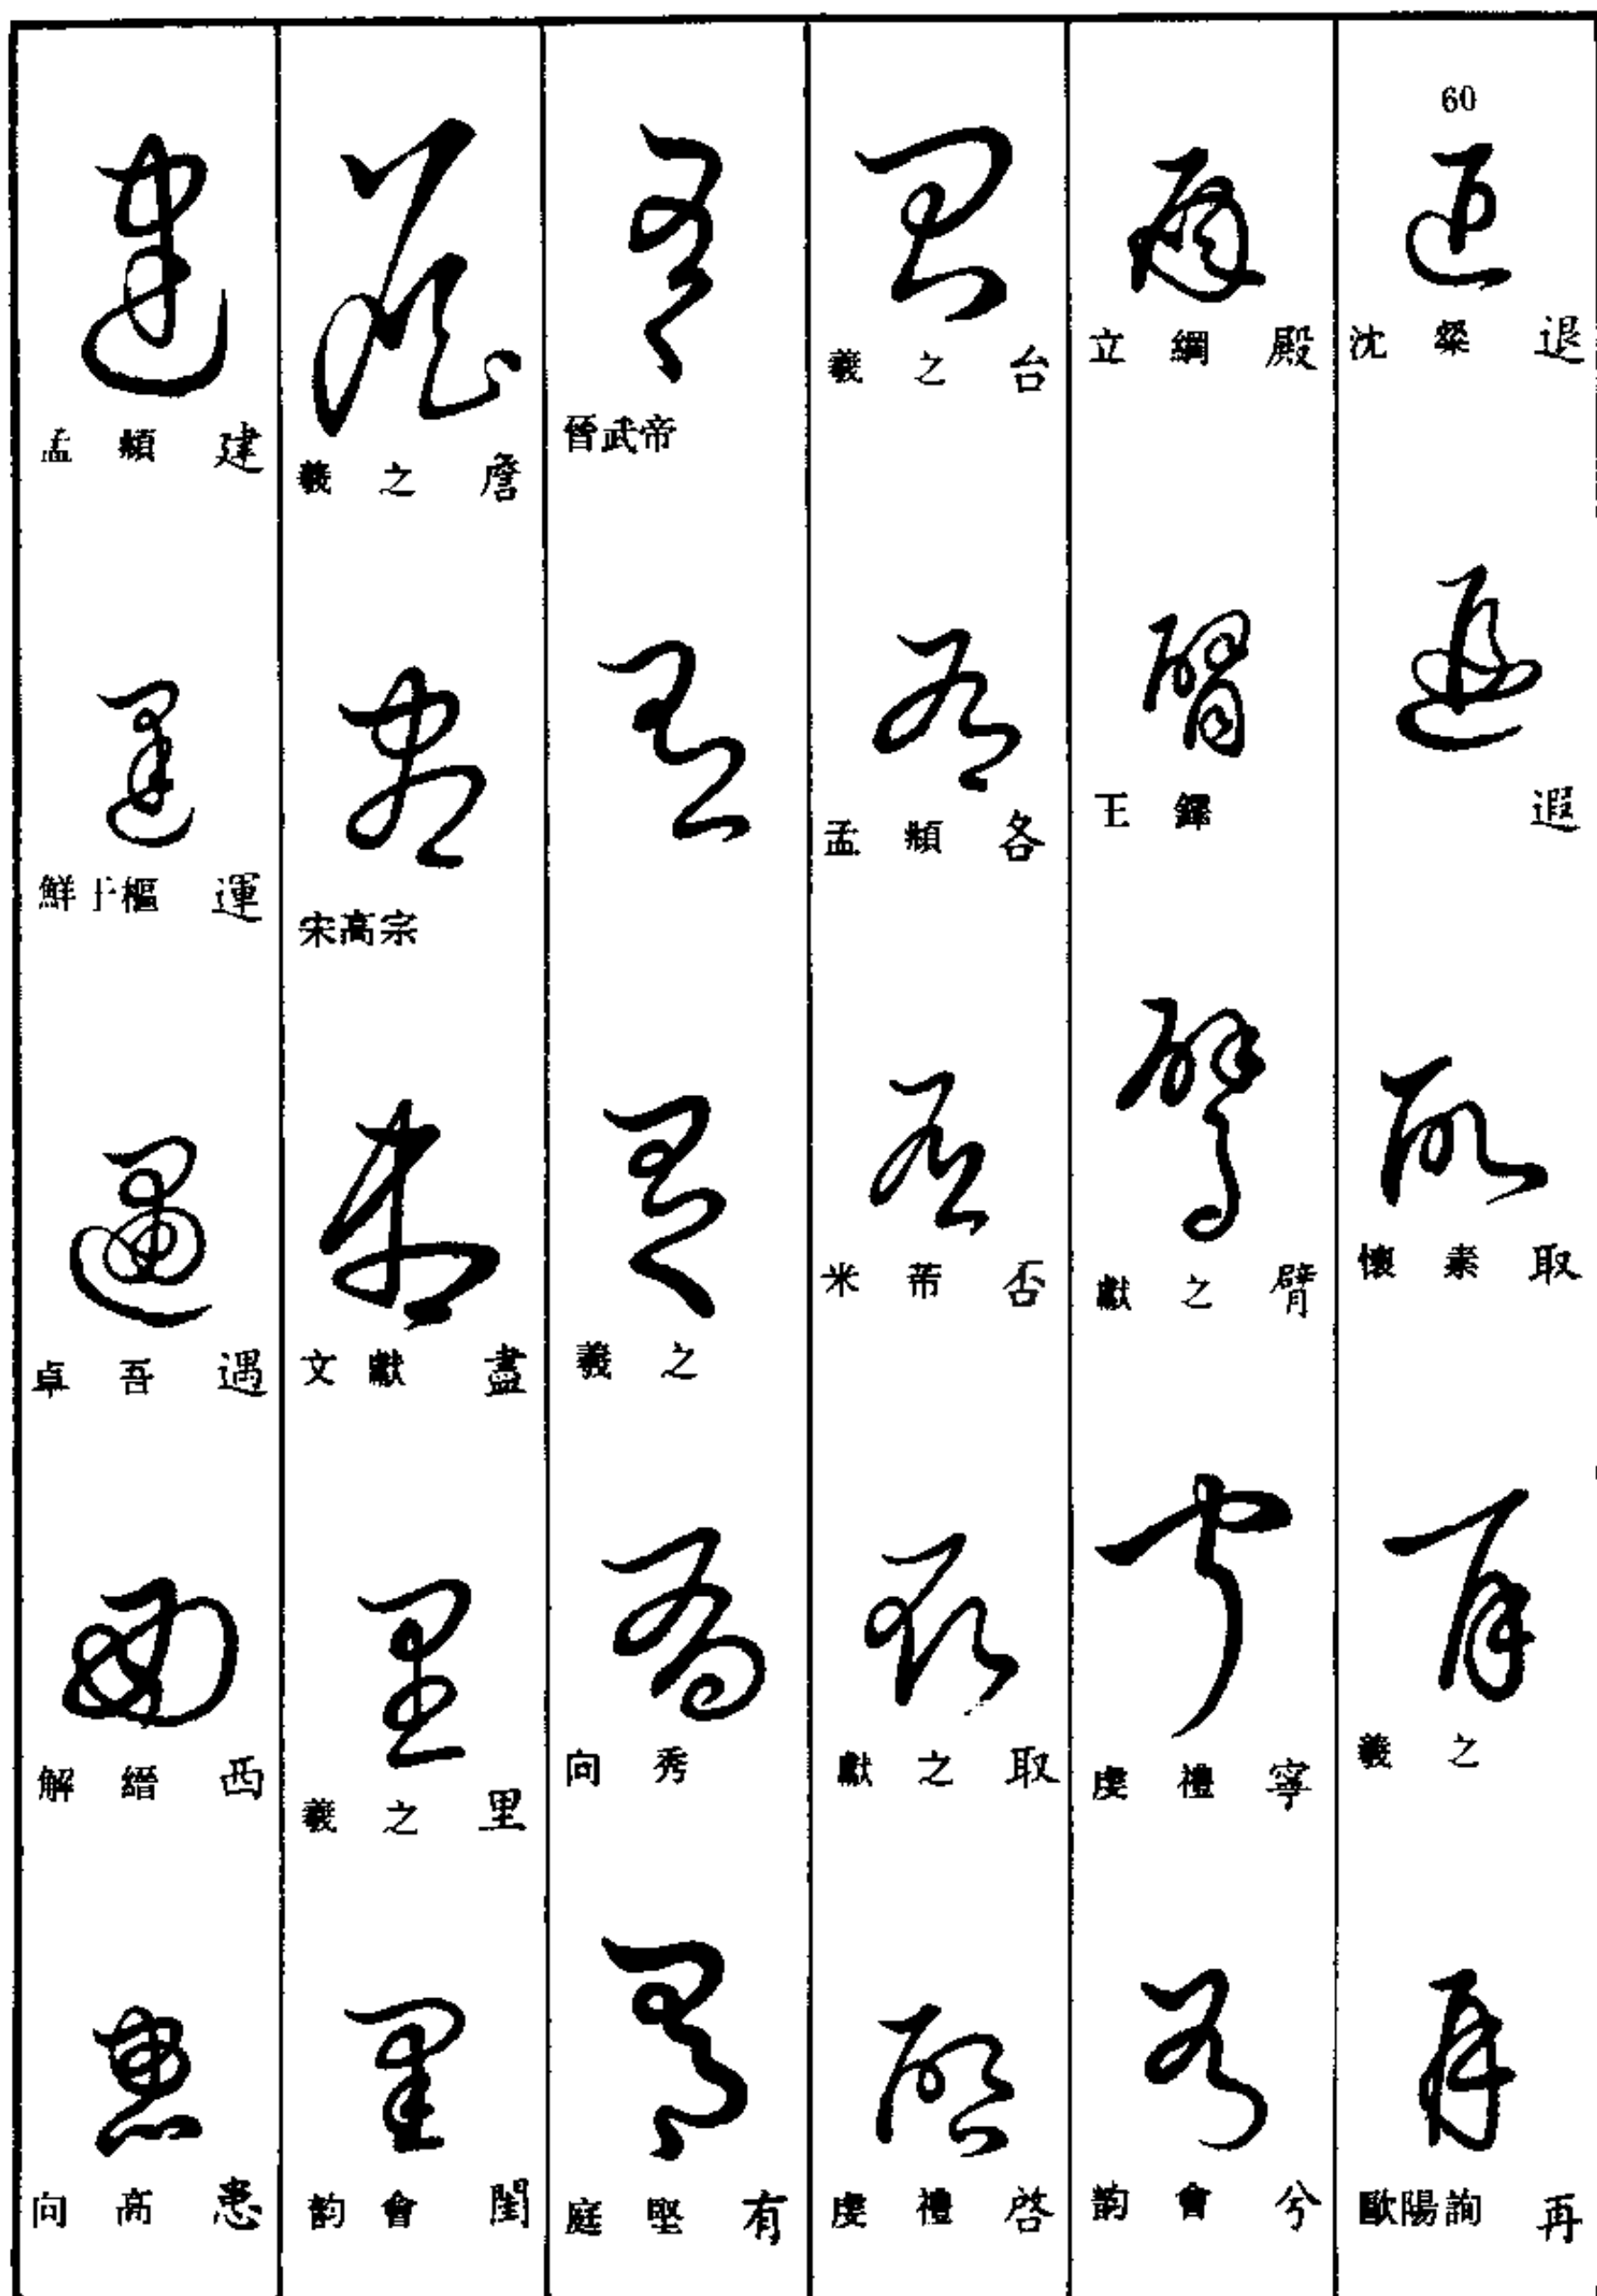 60
沈粲 退
遐
懷素 取
羲之
歐陽詢 再
立綱 殿
王鐸
獻之 臂
虔禮 寧
韵會 兮
羲之 台
孟頫 各
米芾 否
獻之 取
虔禮 啓
晉武帝
羲之
向秀
庭堅 有
羲之 詹
宋高宗
文獻 盡
羲之 里
韵會 閨
孟頫 建
鮮于樞 運
卓吾 遇
解縉 西
向高 患